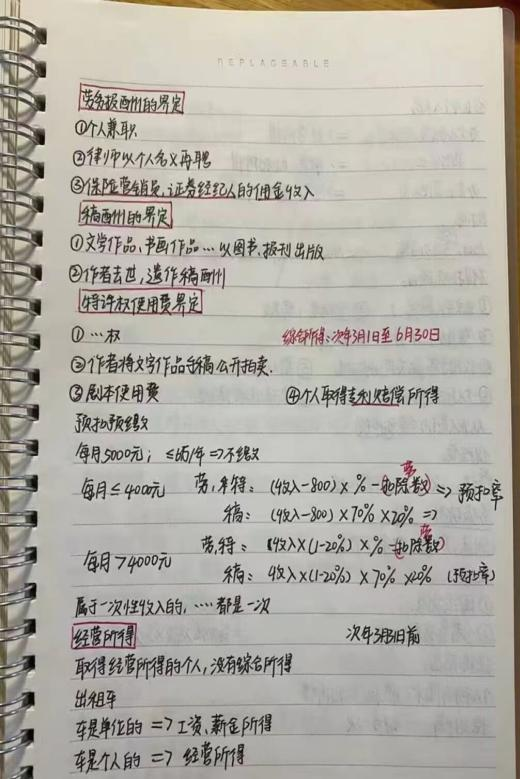 REPLACEABLE
劳务报酬的界定
①个人兼职
②律师以个人名义再聘
③保险营销员、证券经纪人的佣金收入
稿酬的界定
①文学作品、书画作品…以图书、报刊出版
②作者去世,遗作稿酬
特许权使用费界定
①…权 综合所得:次年3月1日至6月30日
②作者将文字作品手稿公开拍卖.
③剧本使用费 ④个人取得专利赔偿所得
预扣预缴
每月5000元; ≤6万/年=>不缴
每月≤4000元 劳、特: (收入-800)×%-扣除数) => 预扣率
劳
稿: (收入-800)×70%×20% =>
每月>4000元 劳、特: 收入×(1-20%)×%-扣除数)
劳
稿: 收入×(1-20%)×70%×20% (预扣率)
属于一次性收入的,…都是一次
经营所得 次年3月31日前
取得经营所得的个人,没有综合所得
出租车
车是单位的 => 工资、薪金所得
车是个人的 => 经营所得